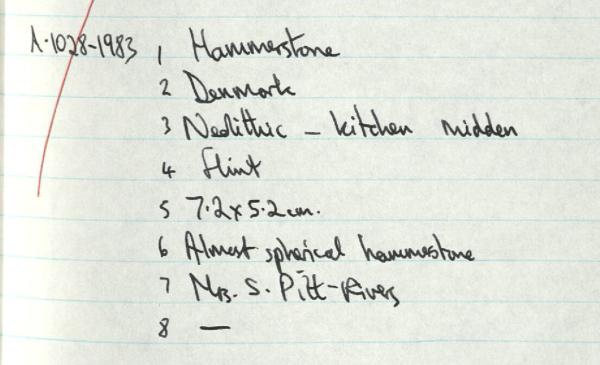 A·1028-1983 1 Hammerstone
2 Denmark
3 Neolithic – kitchen midden
4 flint
5 7·2 x 5·2 cm.
6 Almost spherical hammerstone
7 Mrs. S. Pitt-Rivers
8 —